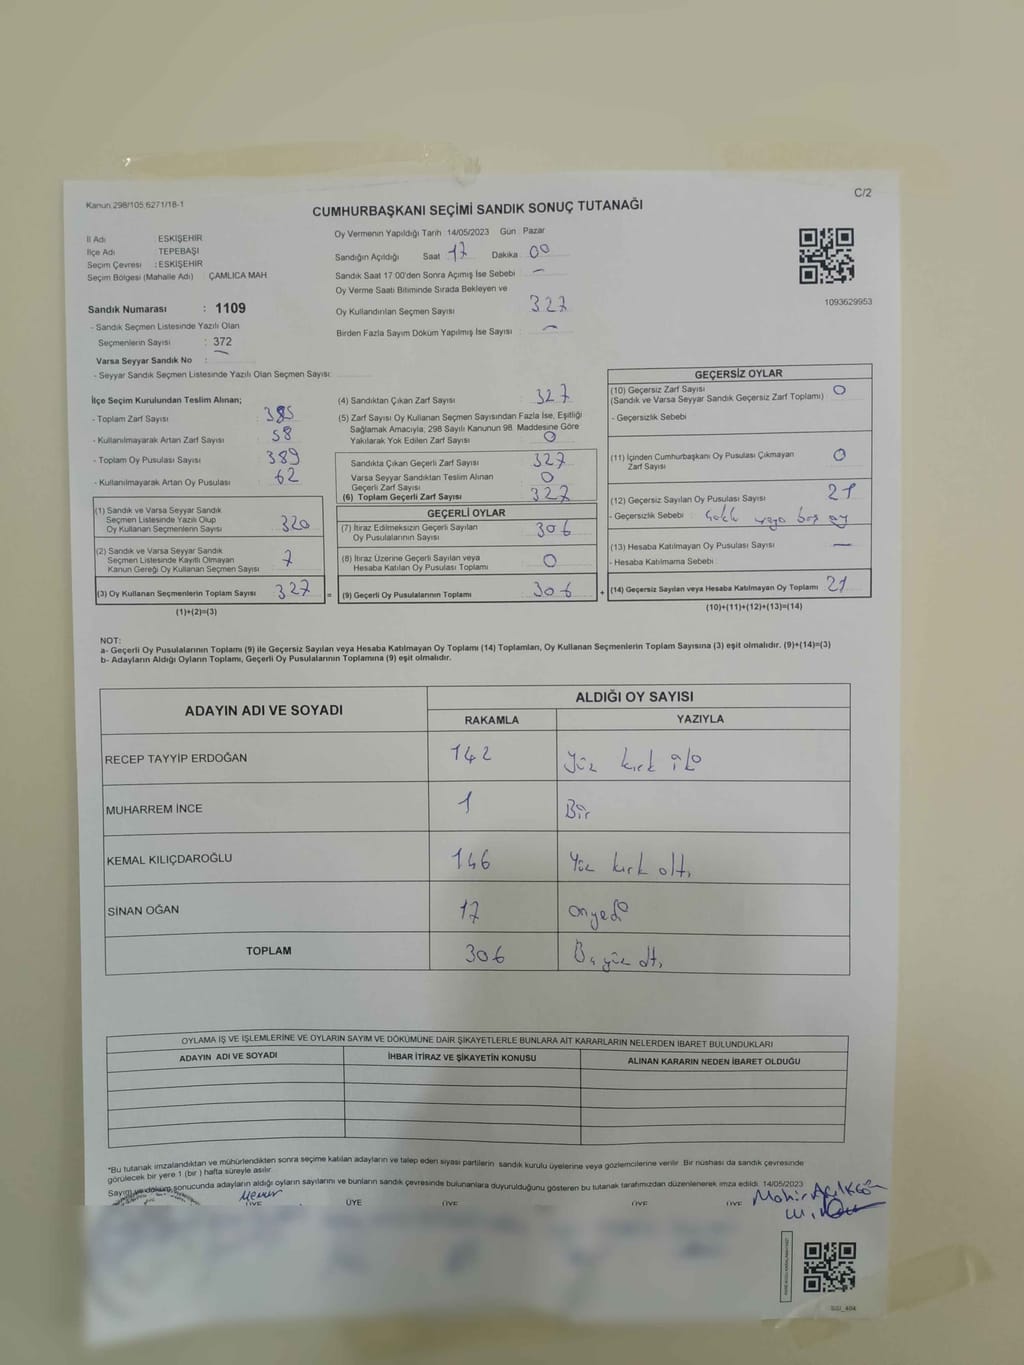 Kanun 298/105,6271/18-1
C/2
CUMHURBAŞKANI SEÇİMİ SANDIK SONUÇ TUTANAĞI
İl Adı : ESKİŞEHİR
İlçe Adı : TEPEBAŞI
Seçim Çevresi : ESKİŞEHİR
Seçim Bölgesi (Mahalle Adı) : ÇAMLICA MAH
Sandık Numarası : 1109
- Sandık Seçmen Listesinde Yazılı Olan
Seçmenlerin Sayısı : 372
Varsa Seyyar Sandık No : —
- Seyyar Sandık Seçmen Listesinde Yazılı Olan Seçmen Sayısı:
Oy Vermenin Yapıldığı Tarih :14/05/2023 Gün : Pazar
Sandığın Açıldığı Saat 17 Dakika 00
Sandık Saat 17:00'den Sonra Açılmış İse Sebebi : —
Oy Verme Saati Bitiminde Sırada Bekleyen ve
Oy Kullandırılan Seçmen Sayısı : 327
Birden Fazla Sayım Döküm Yapılmış İse Sayısı : —
1093629953
İlçe Seçim Kurulundan Teslim Alınan;
- Toplam Zarf Sayısı : 385
- Kullanılmayarak Artan Zarf Sayısı : 58
- Toplam Oy Pusulası Sayısı : 389
- Kullanılmayarak Artan Oy Pusulası : 62
(1) Sandık ve Varsa Seyyar Sandık
Seçmen Listesinde Yazılı Olup
Oy Kullanan Seçmenlerin Sayısı 320
(2) Sandık ve Varsa Seyyar Sandık
Seçmen Listesinde Kayıtlı Olmayan
Kanun Gereği Oy Kullanan Seçmen Sayısı 7
(3) Oy Kullanan Seçmenlerin Toplam Sayısı 327
(1)+(2)=(3)
(4) Sandıktan Çıkan Zarf Sayısı : 327
(5) Zarf Sayısı Oy Kullanan Seçmen Sayısından Fazla İse, Eşitliği
Sağlamak Amacıyla, 298 Sayılı Kanunun 98. Maddesine Göre
Yakılarak Yok Edilen Zarf Sayısı : 0
Sandıkta Çıkan Geçerli Zarf Sayısı : 327
Varsa Seyyar Sandıktan Teslim Alınan
Geçerli Zarf Sayısı : 0
(6) Toplam Geçerli Zarf Sayısı : 327
GEÇERLİ OYLAR
(7) İtiraz Edilmeksizin Geçerli Sayılan
Oy Pusulalarının Sayısı : 306
(8) İtiraz Üzerine Geçerli Sayılan veya
Hesaba Katılan Oy Pusulası Toplamı : 0
= (9) Geçerli Oy Pusulalarının Toplamı : 306
GEÇERSİZ OYLAR
(10) Geçersiz Zarf Sayısı
(Sandık ve Varsa Seyyar Sandık Geçersiz Zarf Toplamı) : 0
- Geçersizlik Sebebi :
(11) İçinden Cumhurbaşkanı Oy Pusulası Çıkmayan
Zarf Sayısı : 0
(12) Geçersiz Sayılan Oy Pusulası Sayısı : 21
- Geçersizlik Sebebi : veya boş oy
(13) Hesaba Katılmayan Oy Pusulası Sayısı : —
- Hesaba Katılmama Sebebi :
+ (14) Geçersiz Sayılan veya Hesaba Katılmayan Oy Toplamı : 21
(10)+(11)+(12)+(13)=(14)
NOT:
a- Geçerli Oy Pusulalarının Toplamı (9) ile Geçersiz Sayılan veya Hesaba Katılmayan Oy Toplamı (14) Toplamları, Oy Kullanan Seçmenlerin Toplam Sayısına (3) eşit olmalıdır. (9)+(14)=(3)
b- Adayların Aldığı Oyların Toplamı, Geçerli Oy Pusulalarının Toplamına (9) eşit olmalıdır.
ADAYIN ADI VE SOYADI
ALDIĞI OY SAYISI
RAKAMLA YAZIYLA
RECEP TAYYİP ERDOĞAN 142 Yüz kırk iki
MUHARREM İNCE 1 Bir
KEMAL KILIÇDAROĞLU 146 Yüz kırk altı
SİNAN OĞAN 17 onyedi
TOPLAM 306 Üçyüz altı
OYLAMA İŞ VE İŞLEMLERİNE VE OYLARIN SAYIM VE DÖKÜMÜNE DAİR ŞİKAYETLERLE BUNLARA AİT KARARLARIN NELERDEN İBARET BULUNDUKLARI
ADAYIN ADI VE SOYADI İHBAR İTİRAZ VE ŞİKAYETİN KONUSU ALINAN KARARIN NEDEN İBARET OLDUĞU
*Bu tutanak imzalandıktan ve mühürlendikten sonra seçime katılan adayların ve talep eden siyasi partilerin sandık kurulu üyelerine veya gözlemcilerine verilir. Bir nüshası da sandık çevresinde
görülecek bir yere 1 (bir ) hafta süreyle asılır.
Sayım ve döküm sonucunda adayların aldığı oyların sayılarını ve bunların sandık çevresinde bulunanlara duyurulduğunu gösteren bu tutanak tarafımızdan düzenlenerek imza edildi. 14/05/2023
ÜYE ÜYE ÜYE ÜYE ÜYE
SSI_404